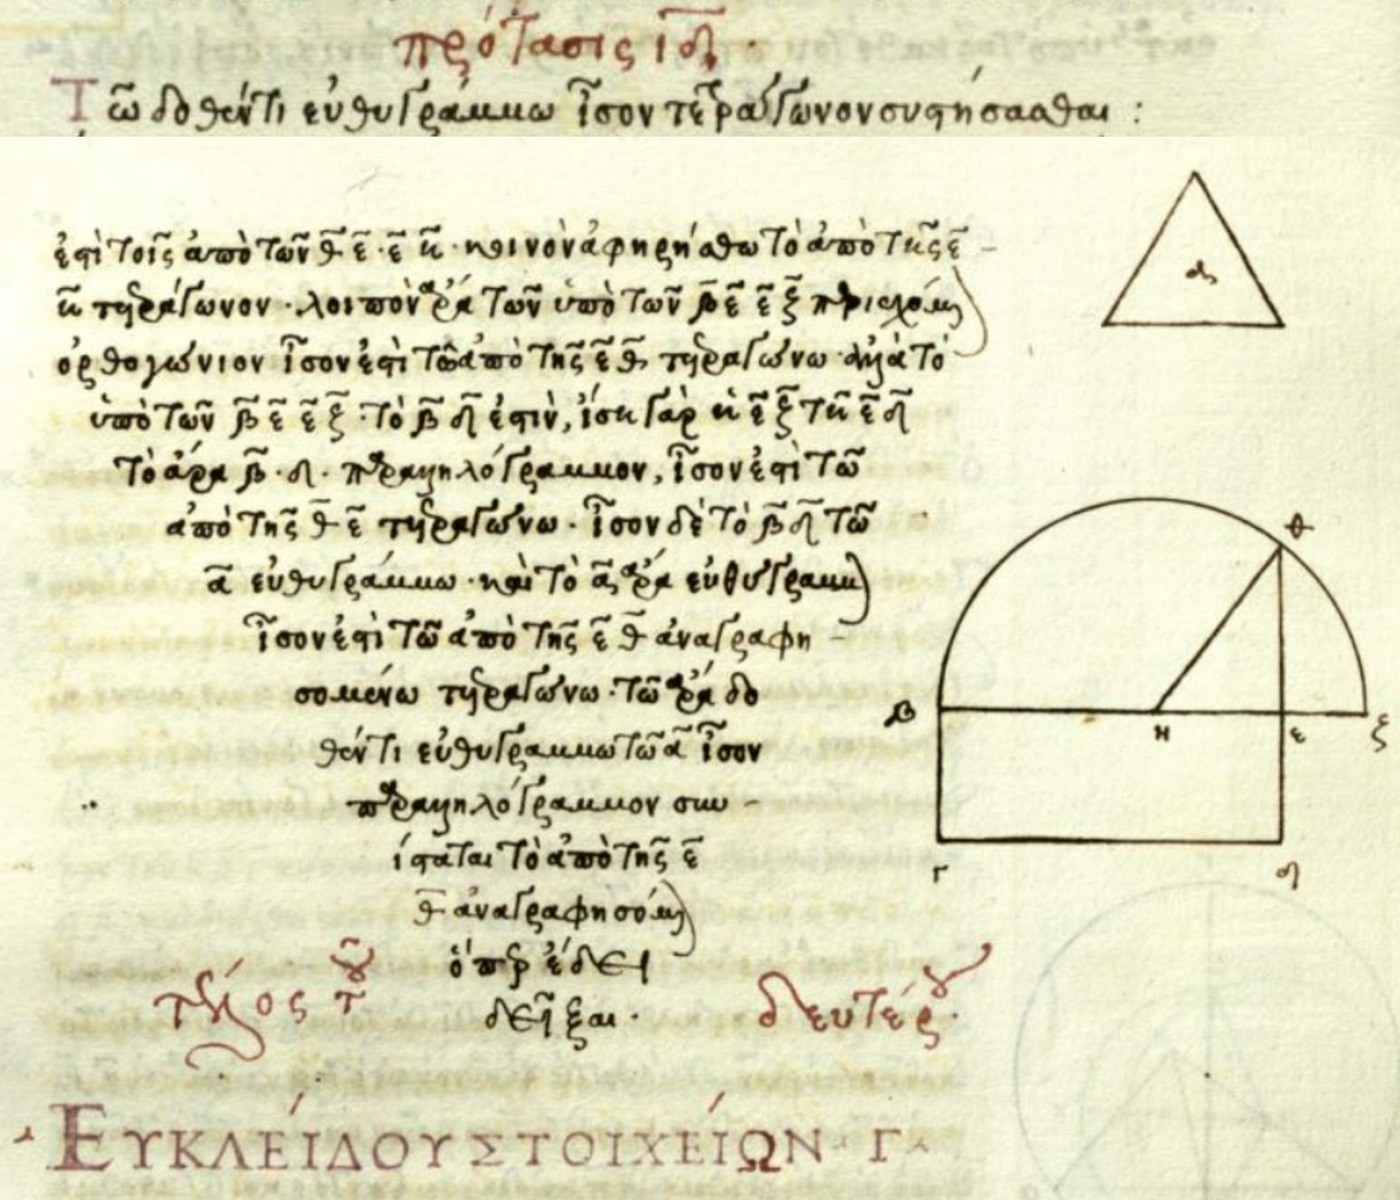 πρότασις ιδ ·
Τῶ δοθέντι εὐθυγράμμω ἴσον τετράγωνον συστήσασθαι :
ἐστὶ τοῖς ἀπὸ τῶν θ ε · ε η · κοινὸν ἀφηρήσθω τὸ ἀπὸ τῆς ε
η τετράγωνον · λοιπὸν ἄρα τῶν ὑπὸ τῶν β ε ε ζ περιεχόμενον
ὀρθογώνιον ἴσον ἐστὶ τῶ ἀπὸ τῆς ε θ τετραγώνω · ἀλλὰ τὸ
ὑπὸ τῶν β ε ε ζ · τὸ β δ ἐστὶν, ἴση γὰρ ἡ ε ζ τῆ ε δ
τὸ ἄρα β · δ · παραλληλόγραμμον, ἴσον ἐστὶ τῶ
ἀπὸ τῆς θ ε τετραγώνω · ἴσον δὲ τὸ β δ τῶ
α εὐθυγράμμω · καὶ τὸ α ἄρα εὐθύγραμμον
ἴσον ἐστὶ τῶ ἀπὸ τῆς ε θ ἀναγραφη -
σομένω τετραγώνω · τῶ ἄρα δο
θέντι εὐθυγράμμω τῶ α ἴσον
παραλληλόγραμμον συν -
ίσταται τὸ ἀπὸ τῆς ε
θ ἀναγραφησόμενον
ὅπερ ἔδει
δεῖξαι ·
τέλος τοῦ δευτέρου ·
ΕΥΚΛΕΊΔΟΥ ΣΤΟΙΧΕΊΩΝ · Γ ·
α
θ
β
η
ε
ζ
γ
δ